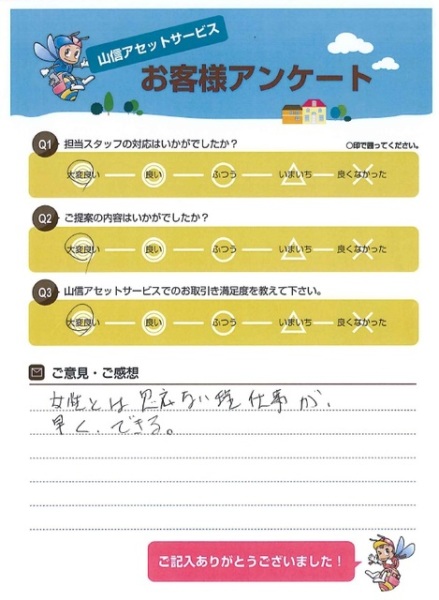 山信アセットサービス
お客様アンケート
Q1 担当スタッフの対応はいかがでしたか？
○印で囲ってください。
大変良い 良い ふつう いまいち 良くなかった
Q2 ご提案の内容はいかがでしたか？
大変良い 良い ふつう いまいち 良くなかった
Q3 山信アセットサービスでのお取引き満足度を教えて下さい。
大変良い 良い ふつう いまいち 良くなかった
ご意見・ご感想
女性とは思えない程仕事が、
早く、できる。
ご記入ありがとうございました！